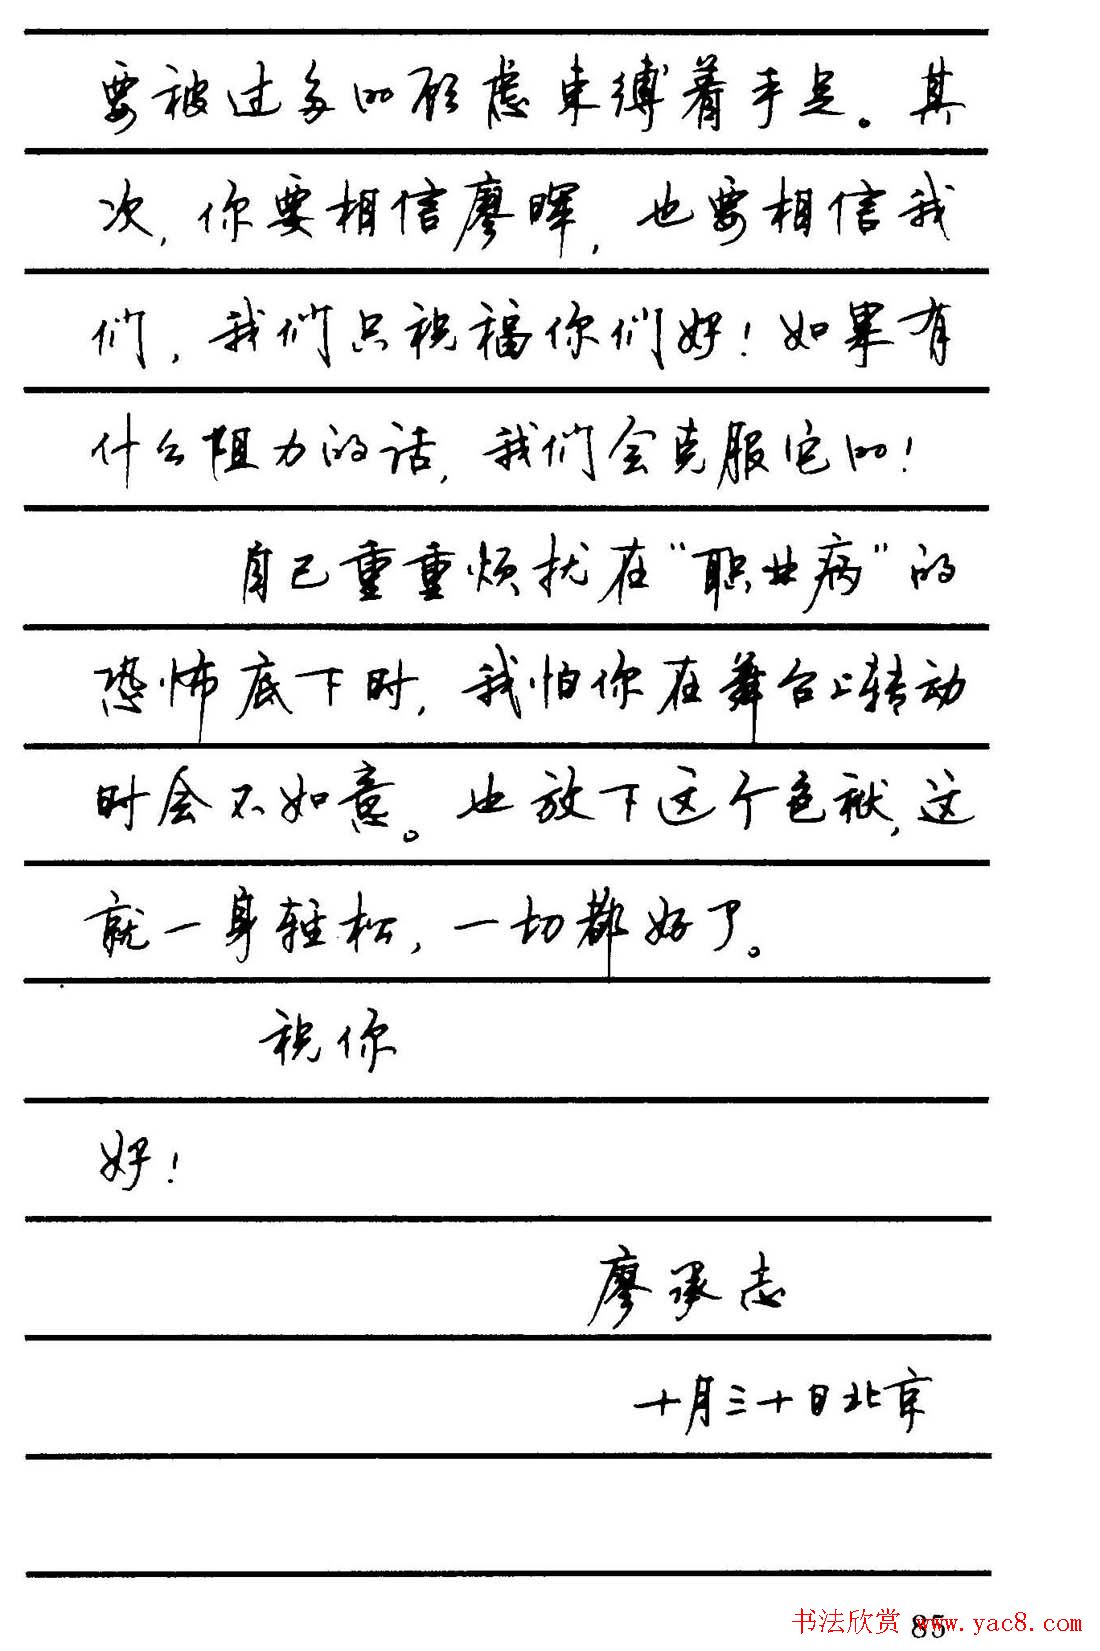 要被过多的顾虑束缚着手足。其
次,你要相信廖晖,也要相信我
们,我们只祝福你们好!如果有
什么阻力的话,我们会克服它的!
自己重重烦扰在“职业病”的
恐怖底下时,我怕你在舞台上转动
时会不如意。也放下这个包袱,这
就一身轻松,一切都好了。
祝你
好!
廖承志
十月三十日北京
85
书法欣赏 www.yac8.com